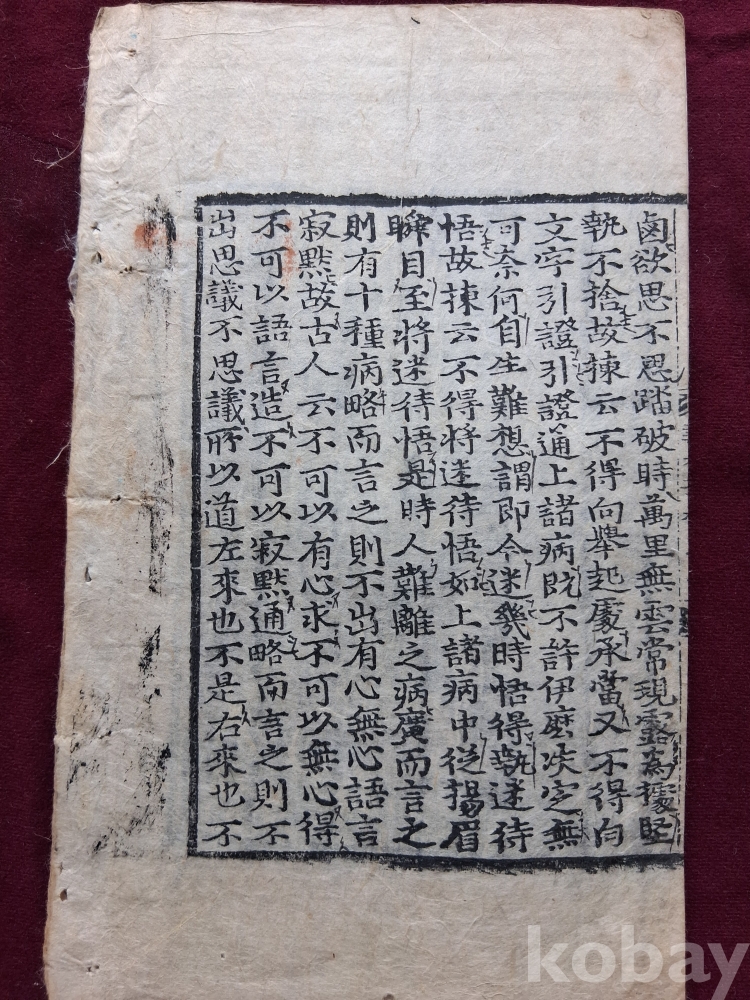 鹵欲思不思踏破時萬里無雲常現露為據堅
執不捨故揀云不得向舉起處承當又不得向
文字引證引證通上諸病旣不許伊麽決定無
可柰何自生難想謂即今迷幾時悟得執迷待
悟故揀云不得將迷待悟如上諸病中從揚眉
瞬目至將迷待悟是時人難離之病廣而言之
則有十種病略而言之則不出有心無心語言
寂默故古人云不可以有心求不可以無心得
不可以語言造不可以寂默通略而言之則不
出思議不思議所以道左來也不是右來也不
kobay